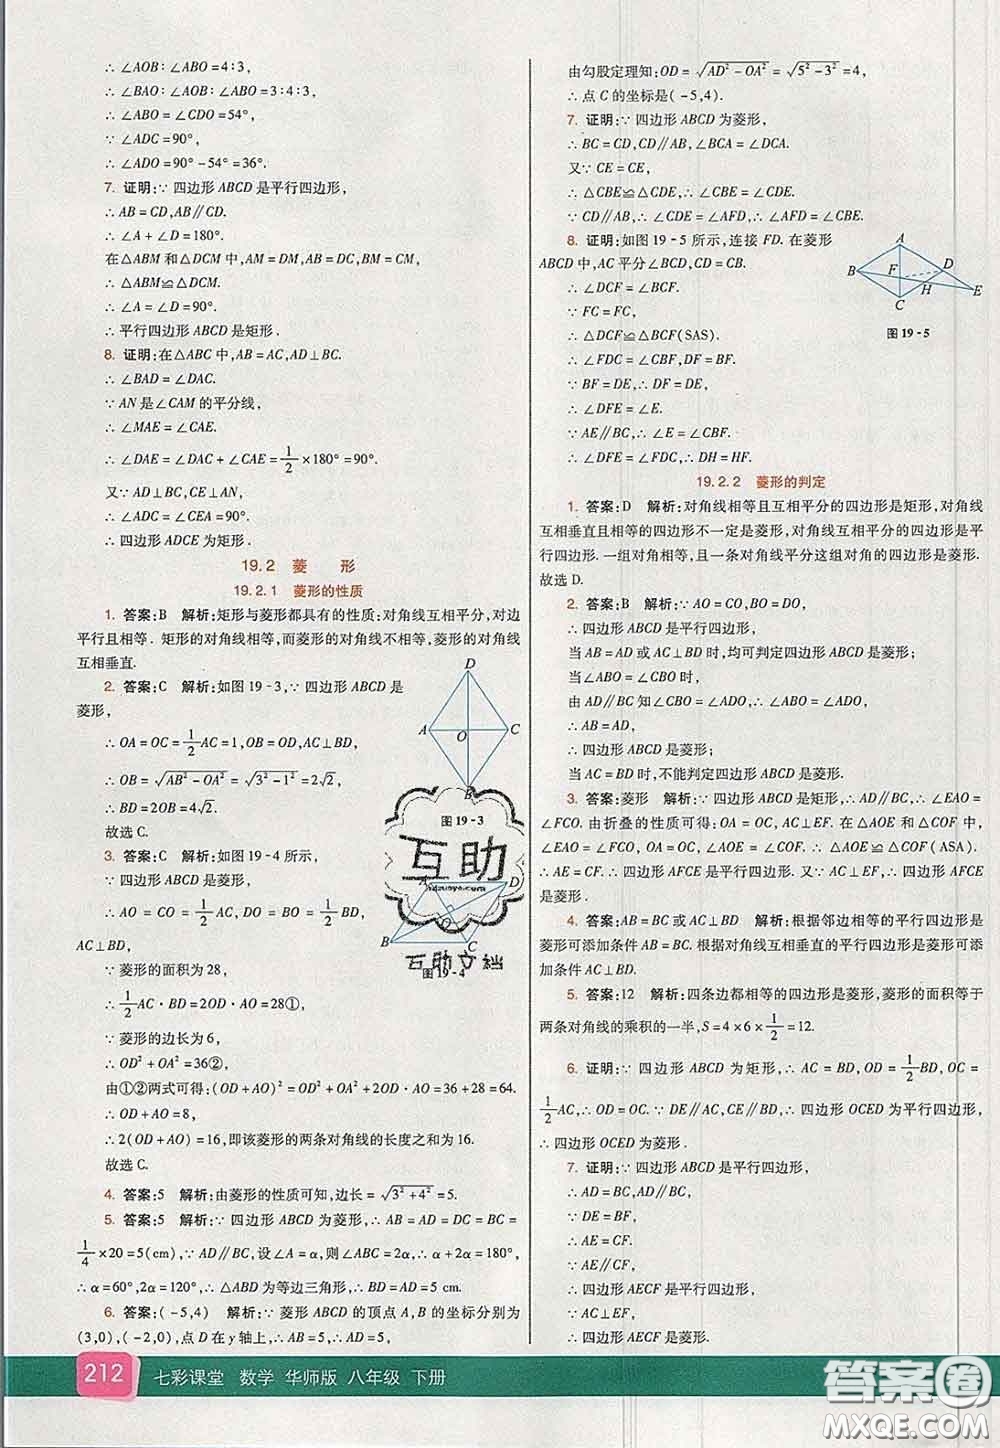 ∴ ∠AOB∶∠ABO=4∶3,
∴ ∠BAO∶∠AOB∶∠ABO=3∶4∶3,
∴ ∠ABO=∠CDO=54°,
∵ ∠ADC=90°,
∴ ∠ADO=90°-54°=36°.
7. 证明:∵ 四边形 ABCD 是平行四边形,
∴ AB=CD,AB∥CD.
∴ ∠A+∠D=180°.
在△ABM 和△DCM 中,∵ AB=DC,AM=DM,BM=CM,
∴ △ABM≌△DCM.
∴ ∠A=∠D=90°.
∴ 平行四边形 ABCD 是矩形.
8. 证明:在△ABC 中,AB=AC,AD⊥BC.
∴ ∠BAD=∠DAC.
∵ AN 是∠CAM 的平分线,
∴ ∠MAE=∠CAE.
∴ ∠DAE=∠DAC+∠CAE=1/2×180°=90°.
又∵ AD⊥BC,CE⊥AN,
∴ ∠ADC=∠CEA=90°,
∴ 四边形 ADCE 为矩形.
19.2 菱 形
19.2.1 菱形的性质
1. 答案:B 解析:矩形与菱形都具有的性质:对角线互相平分,对边
平行且相等. 矩形的对角线相等,而菱形的对角线不相等,菱形的对角线
互相垂直.
2. 答案:C 解析:如图 19-3,∵ 四边形 ABCD 是
菱形,
∴ OA=OC=1/2AC=1,OB=OD,AC⊥BD,
∴ OB=√(AB²-OA²)=√(3²-1²)=2√2.
∴ BD=2OB=4√2.
故选 C.
3. 答案:C 解析:如图 19-4 所示,
∵ 四边形 ABCD 是菱形,
∴ AO=CO=1/2AC,DO=BO=1/2BD,
AC⊥BD,
∵ 菱形的面积为 28,
∴ 1/2AC·BD=2OD·AO=28①,
∵ 菱形的边长为 6,
∴ OD²+OA²=36②,
由①②两式可得:(OD+AO)²=OD²+OA²+2OD·AO=36+28=64.
∴ OD+AO=8,
∴ 2(OD+AO)=16,即该菱形的两条对角线的长度之和为 16.
故选 C.
4. 答案:5 解析:由菱形的性质可知,边长=√(3²+4²)=5.
5. 答案:5 解析:∵ 四边形 ABCD 为菱形,∴ AB=AD=DC=BC=
1/4×20=5(cm),∵ AD∥BC,设∠A=α,则∠ABC=2α,∴ α+2α=180°,
∴ α=60°,2α=120°,∴ △ABD 为等边三角形,∴ BD=AD=5 cm.
6. 答案:(-5,4) 解析:∵ 菱形 ABCD 的顶点 A,B 的坐标分别为
(3,0),(-2,0),点 D 在 y 轴上,∴ AB=5,∴ AD=5,
D
A
O
C
B
图 19-3
互助
A
D
O
B
C
图19-4
互助文档
由勾股定理知:OD=√(AD²-OA²)=√(5²-3²)=4,
∴ 点 C 的坐标是(-5,4).
7. 证明:∵ 四边形 ABCD 为菱形,
∴ BC=CD,CD∥AB,∠BCE=∠DCE.
又∵ CE=CE,
∴ △CBE≌△CDE,∴ ∠CBE=∠CDE.
∵ CD∥AB,∴ ∠CDE=∠AFD,∴ ∠AFD=∠CBE.
8. 证明:如图 19-5 所示,连接 FD. 在菱形
ABCD 中,AC 平分∠BCD,CD=CB.
∴ ∠DCF=∠BCF.
∵ FC=FC,
∴ △DCF≌△BCF(SAS).
∴ ∠FDC=∠CBF,DF=BF.
∵ BF=DE,∴ DF=DE,
∴ ∠DFE=∠E.
∵ AE∥BC,∴ ∠E=∠CBF.
∴ ∠DFE=∠FDC. ∴ DH=HF.
A
D
B
F
H
E
C
图 19-5
19.2.2 菱形的判定
1. 答案:D 解析:对角线相等且互相平分的四边形是矩形,对角线
互相垂直且相等的四边形不一定是菱形,对角线互相平分的四边形是平
行四边形. 一组对角相等,且一条对角线平分这组对角的四边形是菱形.
故选 D.
2. 答案:B 解析:∵ AO=CO,BO=DO,
∴ 四边形 ABCD 是平行四边形,
当 AB=AD 或 AC⊥BD 时,均可判定四边形 ABCD 是菱形;
当∠ABO=∠CBO 时,
由 AD∥BC 知∠CBO=∠ADO,∴ ∠ABO=∠ADO,
∴ AB=AD,
∴ 四边形 ABCD 是菱形;
当 AC=BD 时,不能判定四边形 ABCD 是菱形.
3. 答案:菱形 解析:∵ 四边形 ABCD 是矩形,∴ AB∥CD,∴ ∠EAO=
∠FCO. 由折叠的性质可得:OA=OC,AC⊥EF. 在△AOE 和△COF 中,
∠EAO=∠FCO,OA=OC,∠AOE=∠COF,∴ △AOE≌△COF(ASA).
∴ AE=CF. ∴ 四边形 AFCE 是平行四边形. 又∵ AC⊥EF,∴ 四边形 AFCE
是菱形.
4. 答案:AB=BC 或 AC⊥BD 解析:根据邻边相等的平行四边形是
菱形可添加条件 AB=BC. 根据对角线互相垂直的平行四边形是菱形可添
加条件 AC⊥BD.
5. 答案:12 解析:四条边都相等的四边形是菱形,菱形的面积等于
两条对角线的乘积的一半,S=4×6×1/2=12.
6. 证明:∵ 四边形 ABCD 为矩形,∴ AC=BD,OD=1/2BD,OC=
1/2AC,∴ OD=OC. ∵ DE∥AC,CE∥BD,∴ 四边形 OCED 为平行四边形,
∴ 四边形 OCED 为菱形.
7. 证明:∵ 四边形 ABCD 是平行四边形,
∴ AD=BC,AD∥BC.
∵ DE=BF,
∴ AE=CF.
∵ AE∥CF,
∴ 四边形 AECF 是平行四边形,
∵ AC⊥EF,
∴ 四边形 AECF 是菱形.
212 七彩课堂 数学 华师版 八年级 下册
答案圈
MXQE.COM